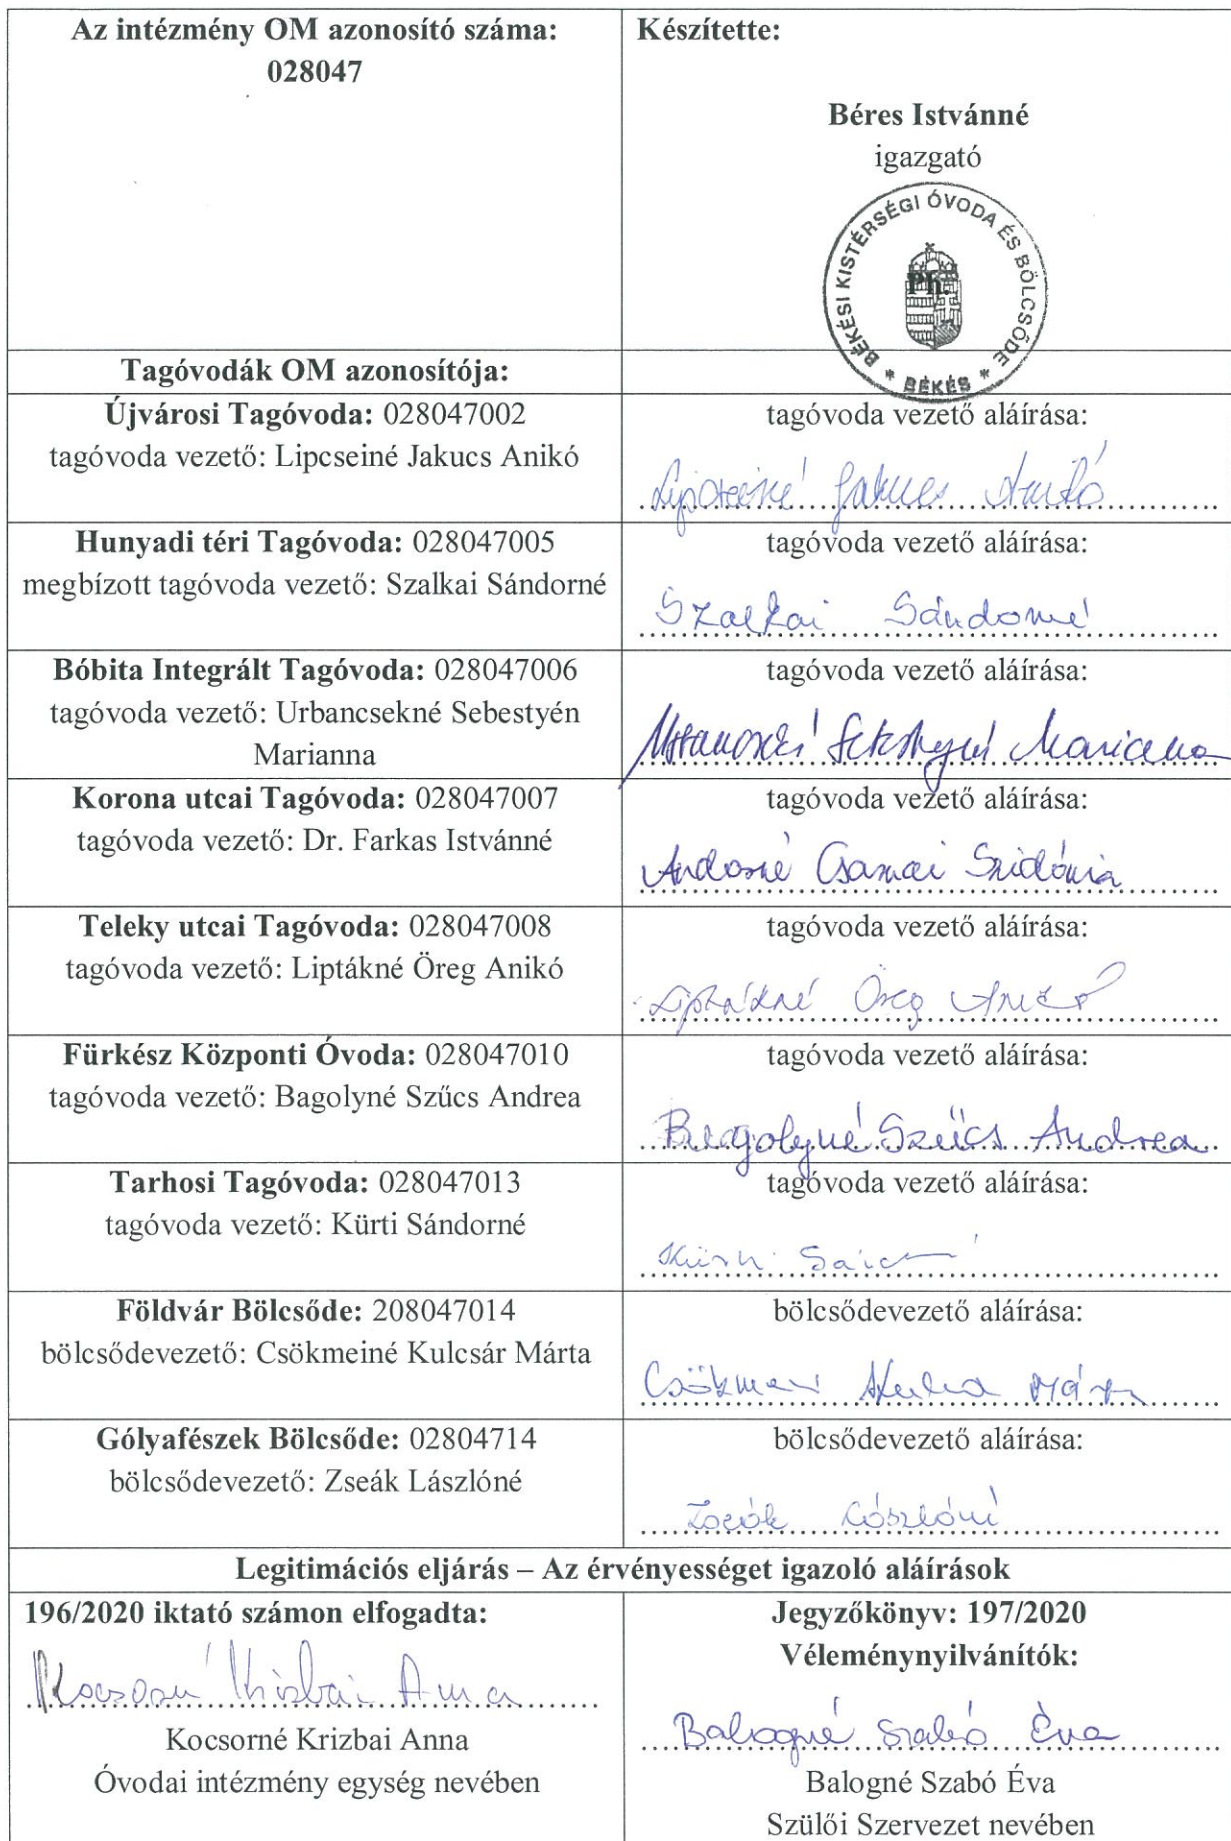 Az intézmény OM azonosító száma:
028047
Készítette:
Béres Istvánné
igazgató
BÉKÉSI KISTÉRSÉGI ÓVODA ÉS BÖLCSŐDE
Ph.
* BÉKÉS *
Tagóvodák OM azonosítója:
Újvárosi Tagóvoda: 028047002
tagóvoda vezető: Lipcseiné Jakucs Anikó
tagóvoda vezető aláírása:
Lipcseiné Jakucs Anikó
Hunyadi téri Tagóvoda: 028047005
megbízott tagóvoda vezető: Szalkai Sándorné
tagóvoda vezető aláírása:
Szalkai Sándorné
Bóbita Integrált Tagóvoda: 028047006
tagóvoda vezető: Urbancsekné Sebestyén
Marianna
tagóvoda vezető aláírása:
Urbancsekné Sebestyén Marianna
Korona utcai Tagóvoda: 028047007
tagóvoda vezető: Dr. Farkas Istvánné
tagóvoda vezető aláírása:
Szidónia
Teleky utcai Tagóvoda: 028047008
tagóvoda vezető: Liptákné Öreg Anikó
tagóvoda vezető aláírása:
Liptákné Öreg Anikó
Fürkész Központi Óvoda: 028047010
tagóvoda vezető: Bagolyné Szűcs Andrea
tagóvoda vezető aláírása:
Bagolyné Szűcs Andrea
Tarhosi Tagóvoda: 028047013
tagóvoda vezető: Kürti Sándorné
tagóvoda vezető aláírása:
Kürti Sándorné
Földvár Bölcsőde: 208047014
bölcsődevezető: Csökmeiné Kulcsár Márta
bölcsődevezető aláírása:
Csökmeiné Kulcsár Márta
Gólyafészek Bölcsőde: 02804714
bölcsődevezető: Zseák Lászlóné
bölcsődevezető aláírása:
Zseák Lászlóné
Legitimációs eljárás – Az érvényességet igazoló aláírások
196/2020 iktató számon elfogadta:
Kocsorné Krizbai Anna
Kocsorné Krizbai Anna
Óvodai intézmény egység nevében
Jegyzőkönyv: 197/2020
Véleménynyilvánítók:
Balogné Szabó Éva
Balogné Szabó Éva
Szülői Szervezet nevében